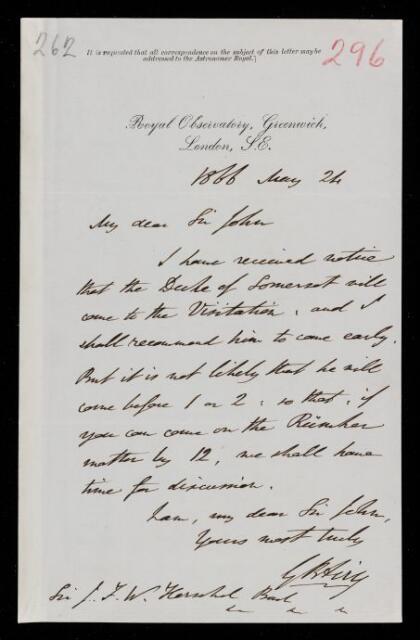 262
296
It is requested that all correspondence on the subject of this letter may be
addressed to the Astronomer Royal.]
Royal Observatory, Greenwich,
London, S.E.
1866 May 24
My dear Sir John
I have received notice
that the Duke of Somerset will
come to the Visitation, and I
shall recommend him to come early.
But it is not likely that he will
come before 1 or 2: so that, if
you can come on the Rümker
matter by 12, we shall have
time for discussion.
I am, my dear Sir John,
Yours most truly
G B Airy
Sir J. F. W. Herschel Bart